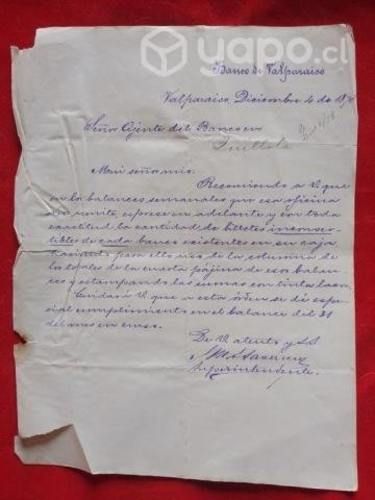 yapo.cl
Banco de Valparaiso
Valparaiso, Diciembre 4 de 18
Señor Ajente del Banco en
Quillota
Mui señor mio:
Recomiendo a U. que
en los balances semanales que esa oficina
nos remite, esprese en adelante y con toda
exactitud la cantidad de billetes inconver-
tibles de cada banco existentes en su caja
para ello uso de la columna
de los totales de la cuarta pájina de esos balan-
ces y estampando las sumas con tinta
Cuidará U. que a esta órden se dé es-
pecial cumplimiento en el balance del 31
del mes en curso.
De U. atento y S.S.
Superintendente.